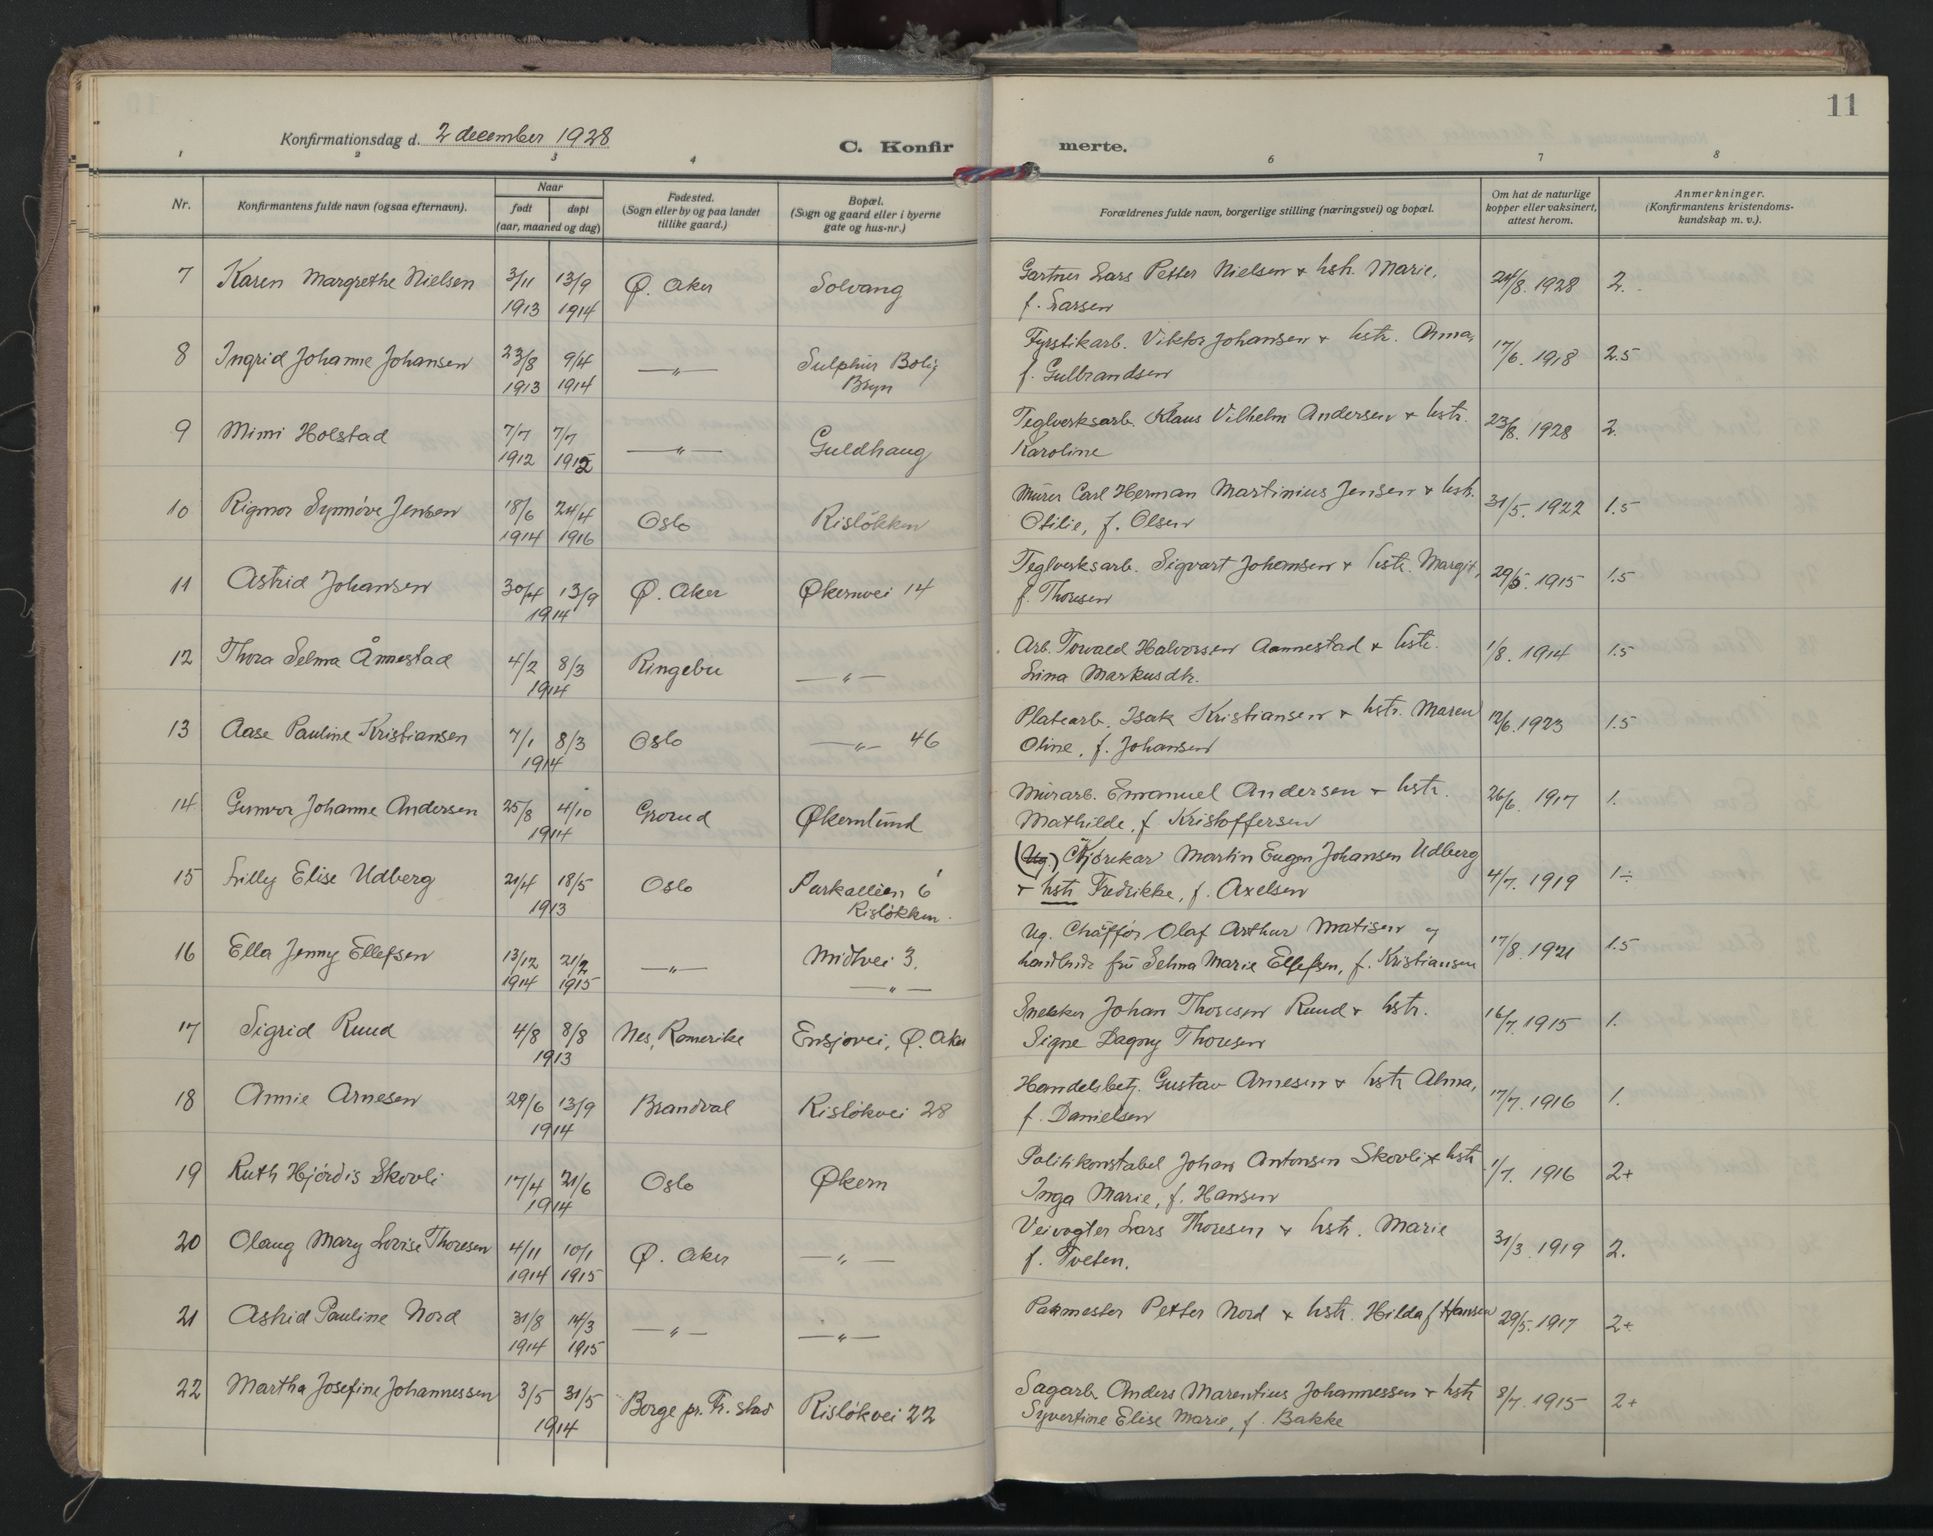 11
Konfirmationsdag d. 2 december 1928
C. Konfirmerte.
1 2 3 4 5 6 7 8
Nr.
Konfirmantens fulde navn (ogsaa efternavn).
Naar
født døpt
(aar, maaned og dag)
Fødested.
(Sogn eller by og paa landet
tillike gaard.)
Bopæl.
(Sogn og gaard eller i byerne
gate og hus-nr.)
Forældrenes fulde navn, borgerlige stilling (næringsvei) og bopæl.
Om hat de naturlige
kopper eller vaksinert,
attest herom.
Anmerkninger.
(Konfirmantens kristendoms-
kundskap m. v.).
7 Karen Margrethe Nielsen 3/11 13/9 Ø. Aker Solvang Gartner Lars Petter Nielsen + hstr. Marie, 24/8. 1928 2.
1913 1914 f. Larsen
8 Ingrid Johanne Johansen 23/8 9/4 —„— Sulphur Bolig Fyrstikarb. Viktor Johansen + hstr. Anna, 17/6. 1918 2.5
1913 1914 Bryn f. Gulbrandsen
9 Mimi Holstad 7/7 7/7 —„— Guldhaug Teglverksarb. Klaus Vilhelm Andersen + hstr. 23/8. 1928 2.
1912 1912 Karoline
10 Rigmor Synnöve Jensen 18/6 24/4 Oslo Rislökken Murer Carl Herman Martinius Jensen + hstr. 31/5. 1922 1.5
1914 1916 Otilie, f. Olsen
11 Astrid Johansen 30/4 13/9 Ø. Aker Økernvei 14 Teglverksarb. Sigvart Johansen + hstr. Margit, 29/5. 1915 1.5
1914 f. Thoresen
12 Thora Selma Ånnestad 4/2 8/3 Ringebu —„— Arb. Torvald Halvorsen Aannestad + hstr. 1/8. 1914 1.5
1914 Lina Markusdtr.
13 Aase Pauline Kristiansen 7/1 8/3 Oslo —„— 46 Platearb. Isak Kristiansen + hstr. Maren 12/6. 1923 1.5
1914 Oline, f. Johansen
14 Gunvor Johanne Andersen 25/8 4/10 Grorud Økernlund Murarb. Emanuel Andersen + hstr. 26/6. 1917 1.
1914 Mathilde, f. Kristoffersen
15 Lilly Elise Udberg 21/4 18/5 Oslo Parkalleen 6 (Ug.) Kjörekar Martin Eugen Johansen Udberg 4/7. 1919 1÷
1913 Rislökken. + hstr Fredrikke, f. Axelsen
16 Ella Jenny Ellefsen 13/12 21/2 —„— Midtvei 3. Ug. Chåfför Olaf Arthur Matisen og 17/8. 1921 1.5
1914 1915 —„— fru Selma Marie Ellefsen, f. Kristiansen
17 Sigrid Ruud 4/8 8/8 Nes, Romerike Ensjøvei, Ø. Aker Snekker Johan Thoresen Ruud + hstr. 16/7. 1915 1.
1913 Signe Dagny Thoresen
18 Annie Arnesen 29/6 13/9 Brandval Rislökvei 28 Handelsbetj. Gustav Arnesen + hstr Alma, 17/7. 1916 1.
1914 f. Danielsen
19 Ruth Hjördis Skovli 17/4 21/6 Oslo Økern Politikonstabel Johan Antonsen Skovli + hstr 1/7. 1916 2+
1914 Inga Marie, f. Hansen
20 Olaug Mary Lovise Thoresen 4/11 10/1 Ø. Aker —„— Veivogter Lars Thoresen + hstr. Marie 31/3. 1919 2.
1914 1915 f. Tveten.
21 Astrid Pauline Nord 31/8 14/3 —„— —„— Pakmester Petter Nord + hstr. Hilda f Hansen 29/5. 1917 2+
1914 1915
22 Martha Josefine Johannessen 3/5 31/5 Borge pr. Fr. stad Rislökvei 22 Sagarb. Anders Marentius Johannessen + hstr 8/7. 1915 2+
1914 Syvertine Elise Marie, f. Bakke